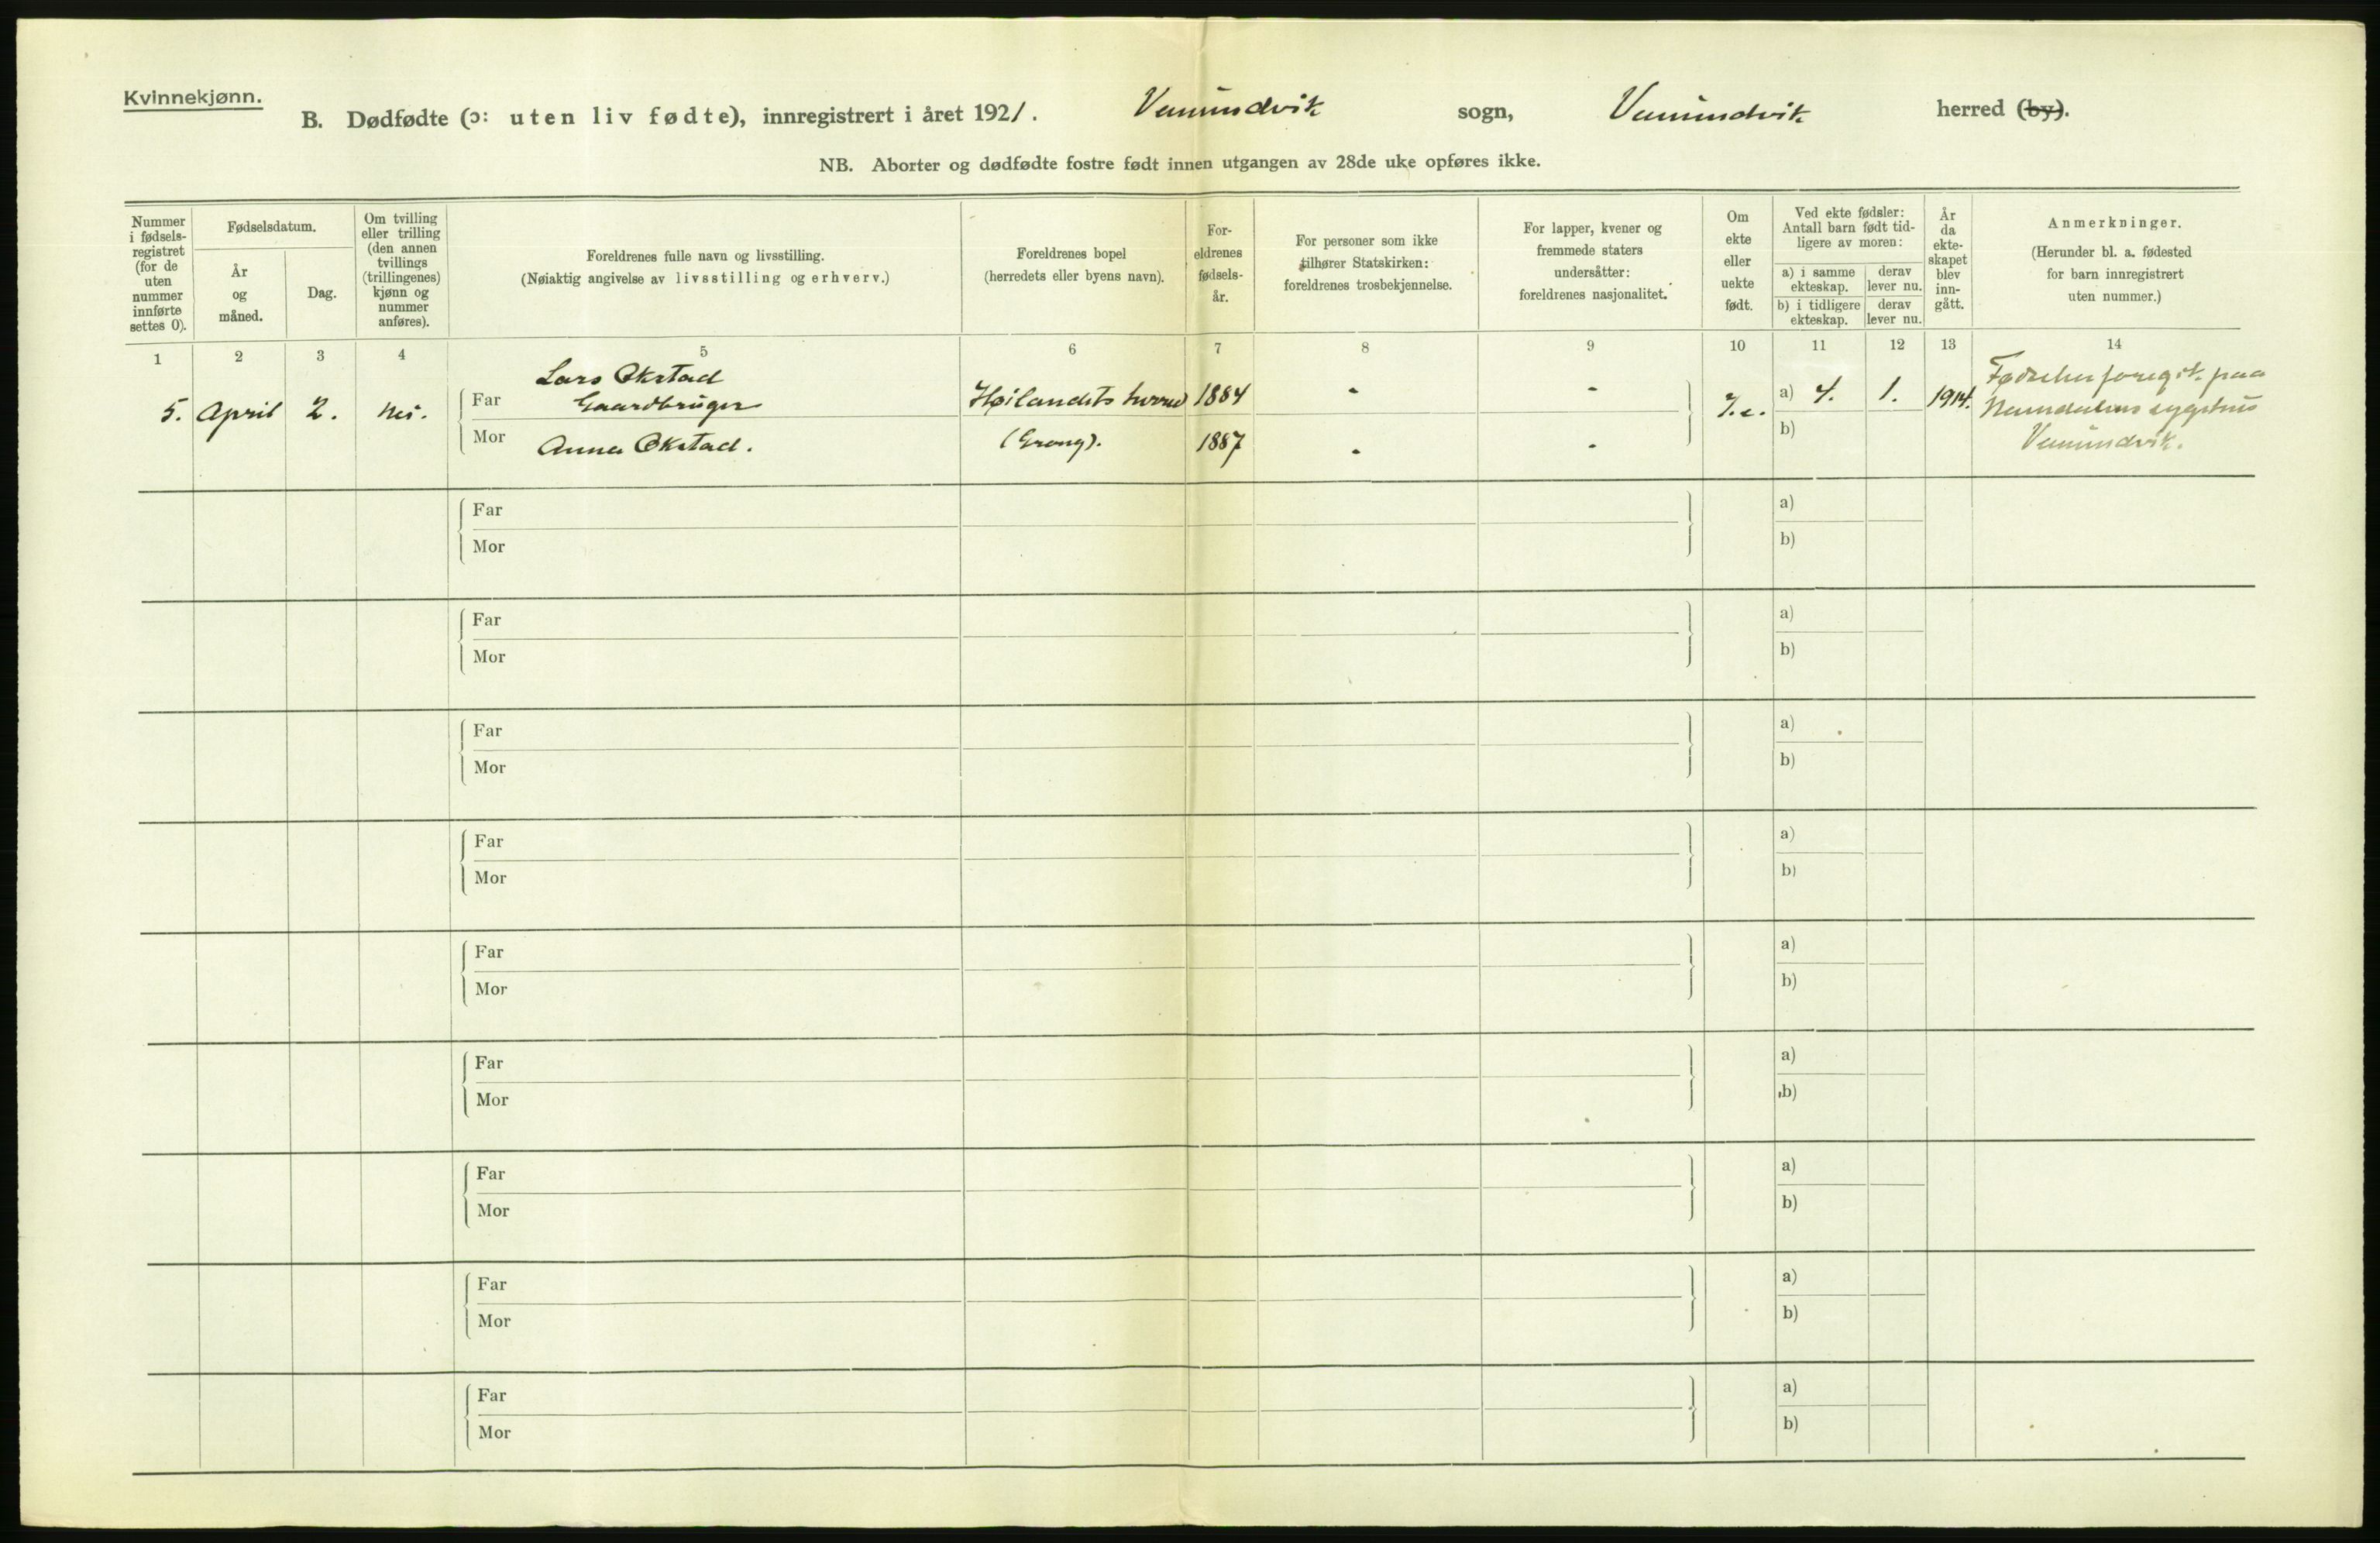 Kvinnekjønn.
B. Dødfødte (ɔ: uten liv fødte), innregistrert i året 1921. Vemundvik sogn, Vemundvik herred (by).
NB. Aborter og dødfødte fostre født innen utgangen av 28de uke opføres ikke.
Nummer
i fødsels-
registret
(for de
uten
nummer
innførte
settes 0).
Fødselsdatum.
År
og
måned.
Dag.
Om tvilling
eller trilling
(den annen
tvillings
(trillingenes)
kjønn og
nummer
anføres).
Foreldrenes fulle navn og livsstilling.
(Nøiaktig angivelse av livsstilling og erhverv.)
Foreldrenes bopel
(herredets eller byens navn).
For-
eldrenes
fødsels-
år.
For personer som ikke
tilhører Statskirken:
foreldrenes trosbekjennelse.
For lapper, kvener og
fremmede staters
undersåtter:
foreldrenes nasjonalitet.
Om
ekte
eller
uekte
født.
Ved ekte fødsler:
Antall barn født tid-
ligere av moren:
a) i samme
ekteskap.
derav
lever nu.
b) i tidligere
ekteskap.
derav
lever nu.
År
da
ekte-
skapet
blev
inn-
gått.
Anmerkninger.
(Herunder bl. a. fødested
for barn innregistrert
uten nummer.)
1 2 3 4 5 6 7 8 9 10 11 12 13 14
5. April 2. Nei.
Lars Økstad
Far Gaardbruger
Mor Anna Økstad.
Høilandets herred
(Grong).
1884 - -
1887 - -
a) 4. 1. 1914.
b)
Fødselen foregik paa
Namdalens sygehus
Vemundvik.
Far a)
Mor b)
Far a)
Mor b)
Far a)
Mor b)
Far a)
Mor b)
Far a)
Mor b)
Far a)
Mor b)
Far a)
Mor b)
Far a)
Mor b)
Far a)
Mor b)